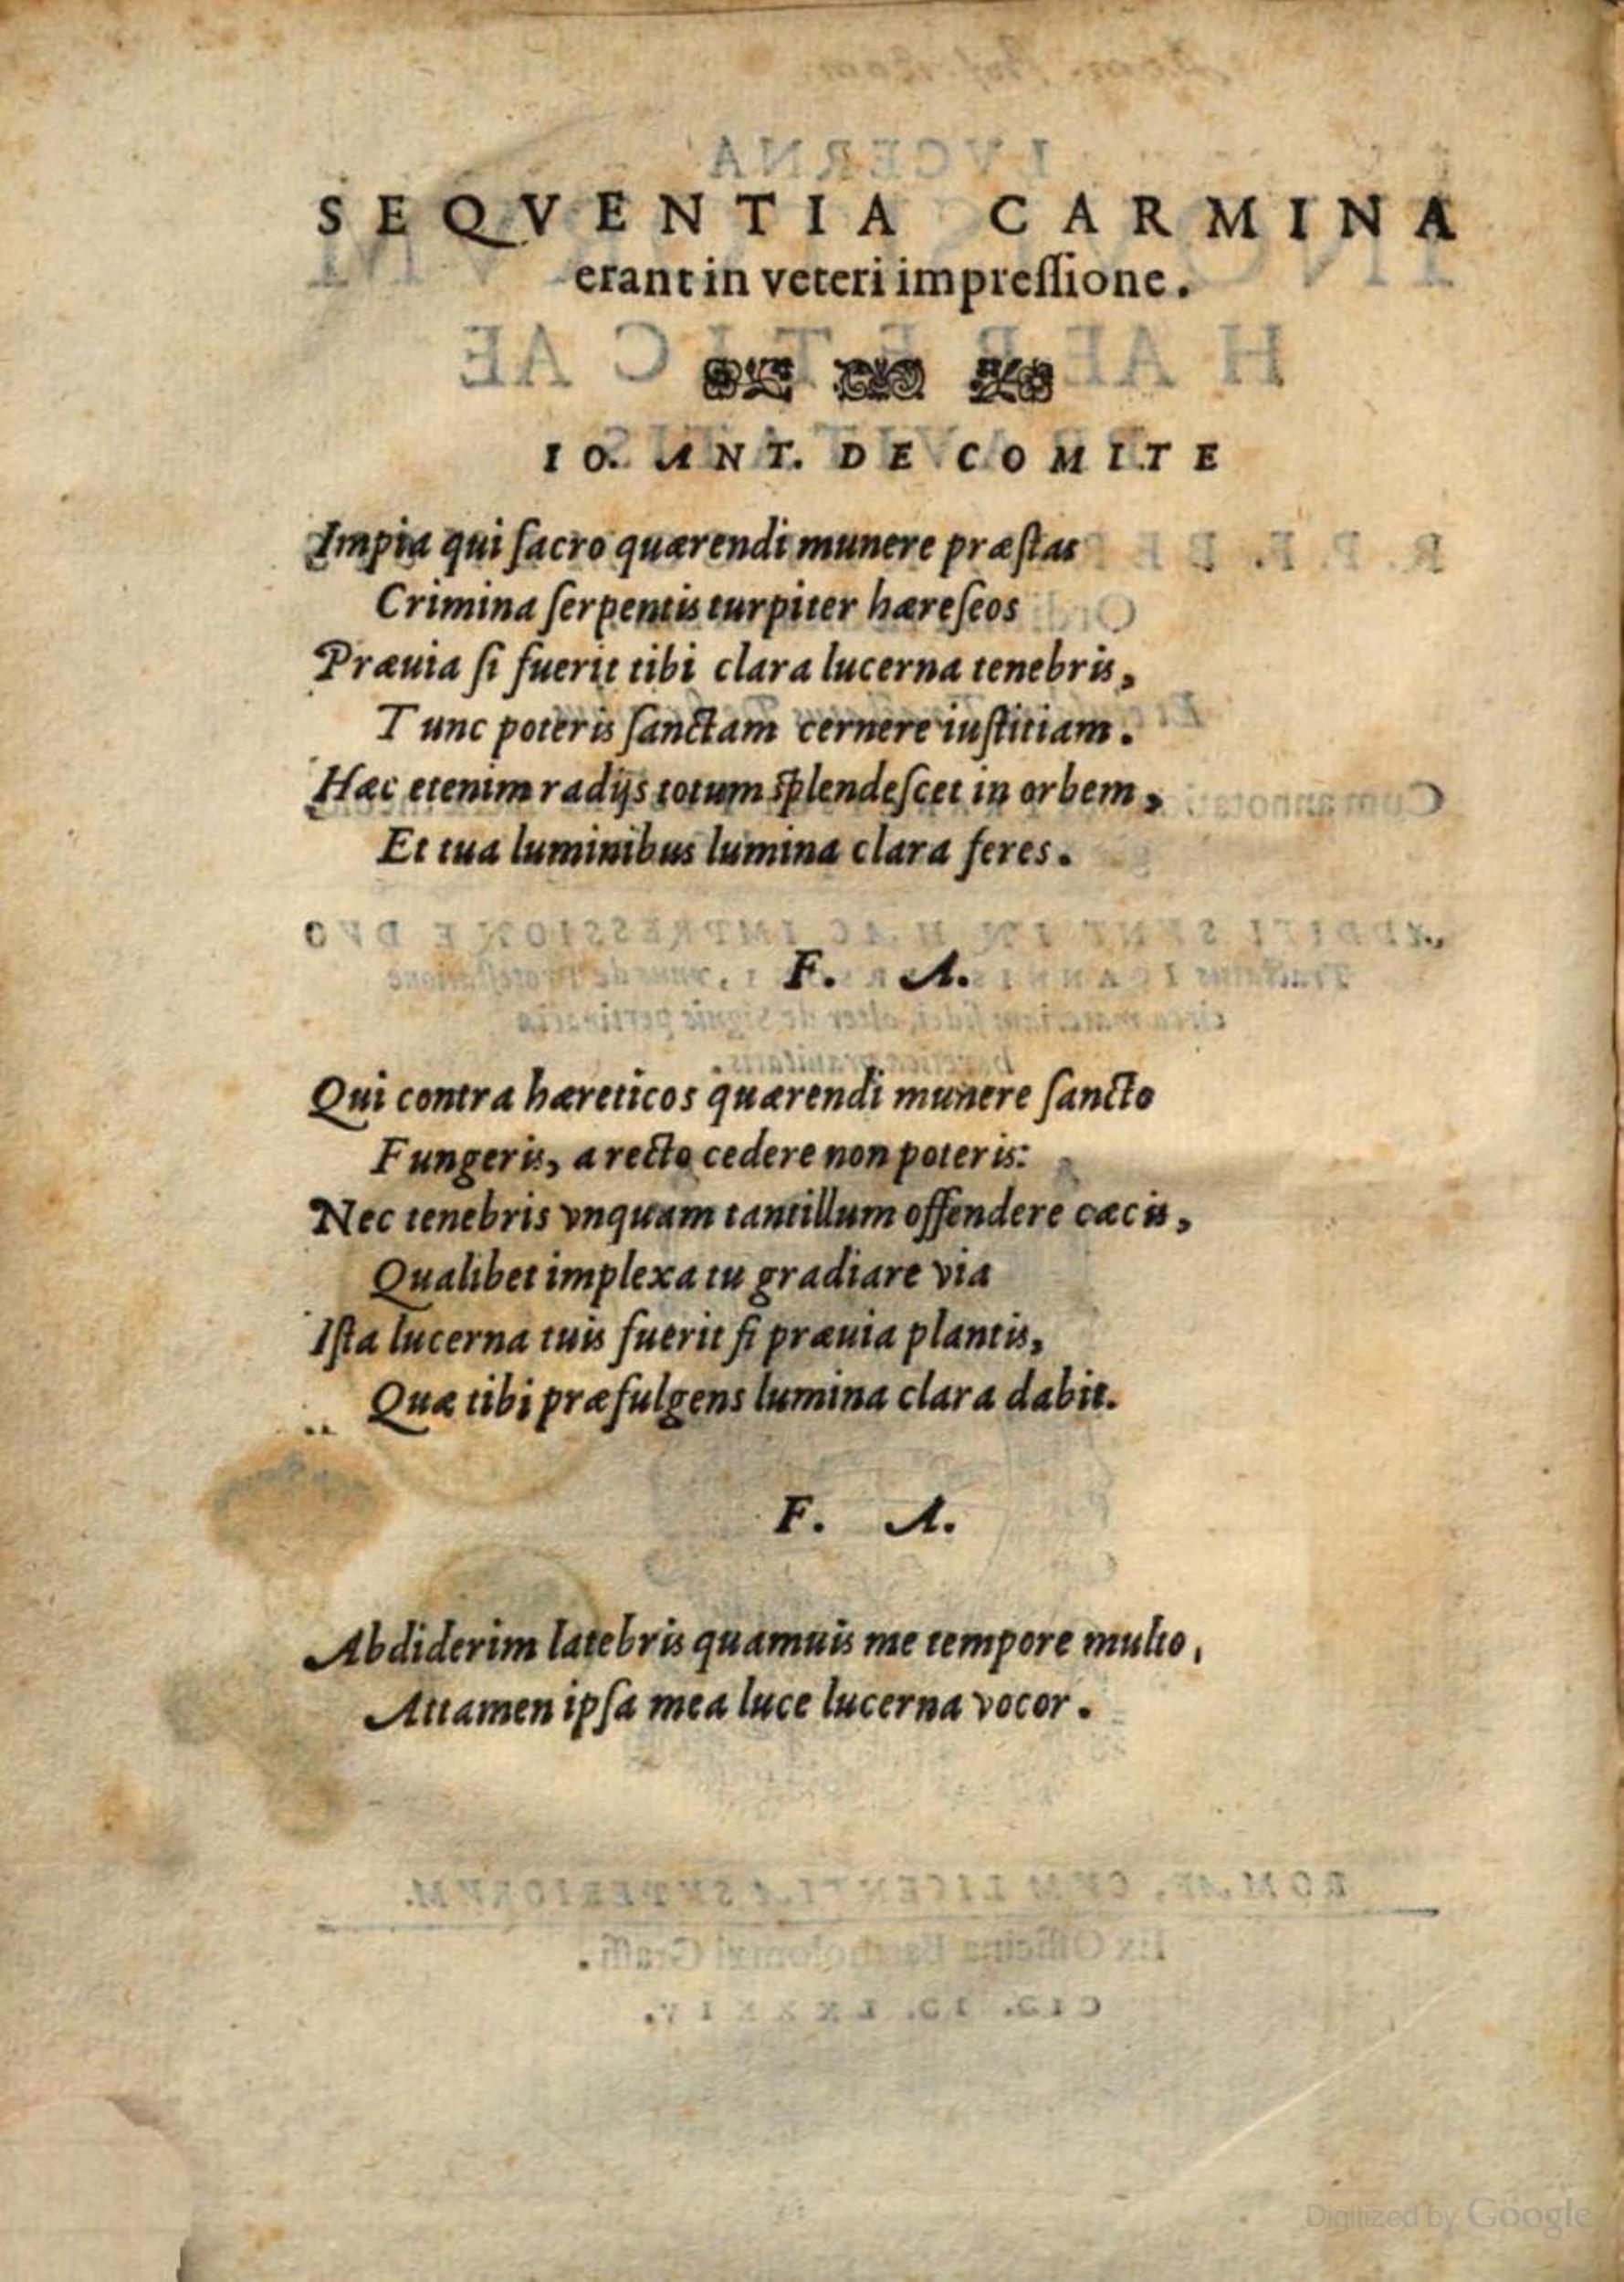 SEQVENTIA CARMINA
erant in veteri impressione.
IO. ANT. DE COMITE
Impia qui sacro quærendi munere præstas
Crimina serpentis turpiter hæreseos
Præuia si fuerit tibi clara lucerna tenebris,
Tunc poteris sanctam cernere iustitiam.
Hæc etenim radijs totum splendescet in orbem,
Et tua luminibus lumina clara feres.
F. A.
Qui contra hæreticos quærendi munere sancto
Fungeris, a recto cedere non poteris:
Nec tenebris vnquam tantillum offendere cæcis,
Qualibet implexa tu gradiare via
Ista lucerna tuis fuerit si præuia plantis,
Quæ tibi præfulgens lumina clara dabit.
F. A.
Abdiderim latebris quamuis me tempore multo,
Attamen ipsa mea luce lucerna vocor.
Digitized by Google